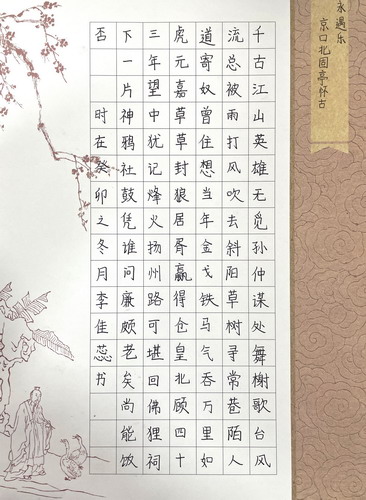 永遇乐
京口北固亭怀古
千古江山英雄无觅孙仲谋处舞榭歌台风
流总被雨打风吹去斜阳草树寻常巷陌人
道寄奴曾住想当年金戈铁马气吞万里如
虎元嘉草草封狼居胥赢得仓皇北顾四十
三年望中犹记烽火扬州路可堪回佛狸祠
下一片神鸦社鼓凭谁问廉颇老矣尚能饭
否 时在癸卯之冬月李佳蕊书